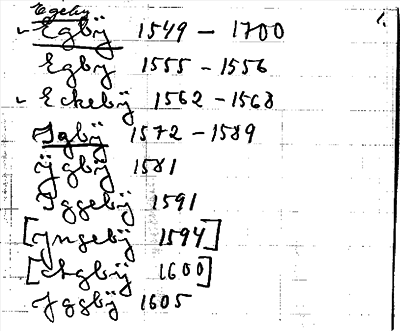 Egeby
1.
Egbÿ 1549 - 1700
Egby 1555 - 1556
Eckebÿ 1562 - 1568
Igbÿ 1572 - 1589
Ÿgbÿ 1581
Iggebÿ 1591
[Yngebÿ 1594]
1600]
1605